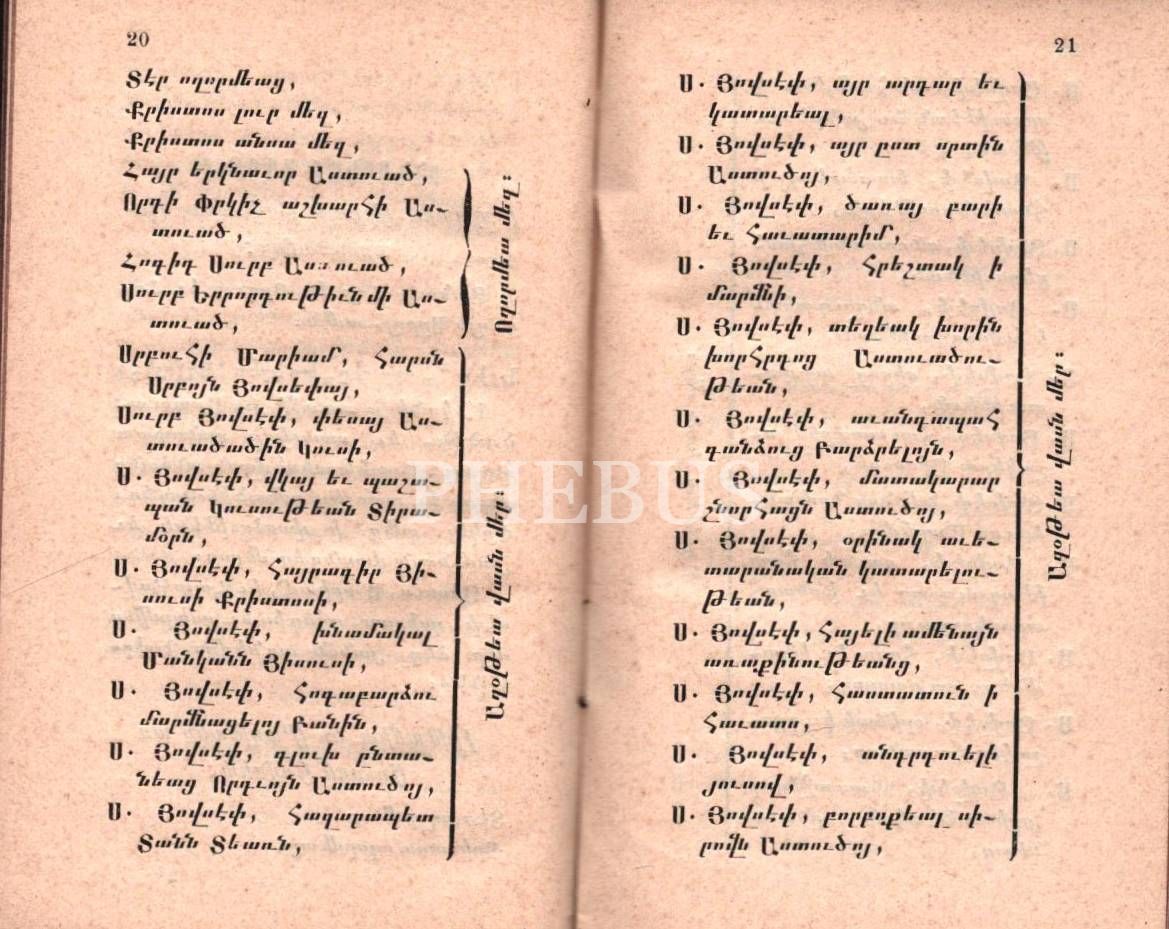 20
Տէր ողորմեաց,
Քրիստոս լուր մեզ,
Քրիստոս անսա մեզ,
Հայր երկնաւոր Աստուած,
Որդի Փրկիչ աշխարհի Աս-
տուած,
Հոգիդ Սուրբ Աստուած,
Սուրբ Երրորդութիւն մի Աս-
տուած,
Ողորմեա մեզ:
Սրբուհի Մարիամ, հարսն
Սրբոյն Յովսեփայ,
Սուրբ Յովսէփ, փեսայ Աս-
տուածածին Կուսի,
Ս. Յովսէփ, վկայ եւ պաշտ-
պան կուսութեան Տիրա-
մօրն,
Ս. Յովսէփ, հայրագիր Յի-
սուսի Քրիստոսի,
Ս. Յովսէփ, խնամակալ
Մանկանն Յիսուսի,
Ս. Յովսէփ, հոգաբարձու
մարմնացելոյ Բանին,
Ս. Յովսէփ, գլուխ ընտա-
նեաց Որդւոյն Աստուծոյ,
Ս. Յովսէփ, հազարապետ
Տանն Տեառն,
Աղօթեա վասն մեր:
21
Ս. Յովսէփ, այր արդար եւ
կատարեալ,
Ս. Յովսէփ, այր ըստ սրտին
Աստուծոյ,
Ս. Յովսէփ, ծառայ բարի
եւ հաւատարիմ,
Ս. Յովսէփ, հրեշտակ ի
մարմնի,
Ս. Յովսէփ, տեղեակ խորին
խորհրդոց Աստուածու-
թեան,
Ս. Յովսէփ, աւանդապահ
գանձուց Բարձրելոյն,
Ս. Յովսէփ, մատակարար
շնորհացն Աստուծոյ,
Ս. Յովսէփ, օրինակ աւե-
տարանական կատարելու-
թեան,
Ս. Յովսէփ, հայելի ամենայն
առաքինութեանց,
Ս. Յովսէփ, հաստատուն ի
հաւատս,
Ս. Յովսէփ, անդրդուելի
յուսով,
Ս. Յովսէփ, բորբոքեալ սի-
րովն Աստուծոյ,
Աղօթեա վասն մեր:
PHEBUS